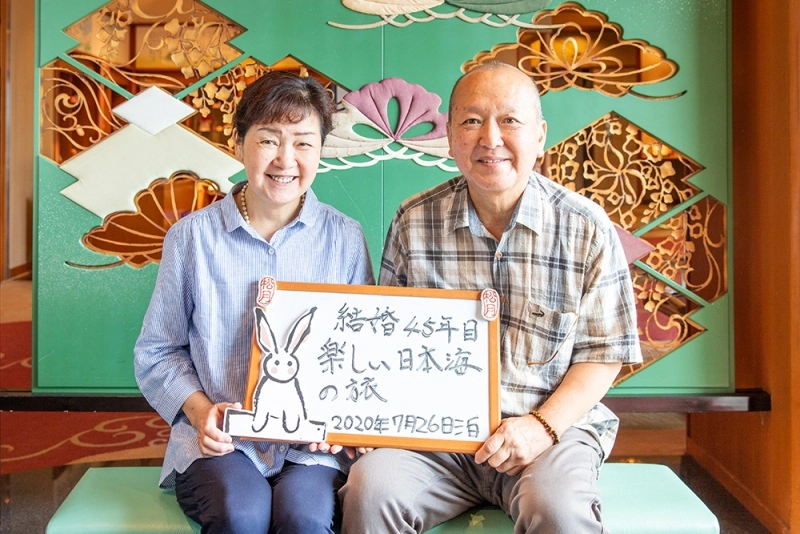 松月
松月
結婚45年目
楽しい日本海
の旅
2020年7月26日泊